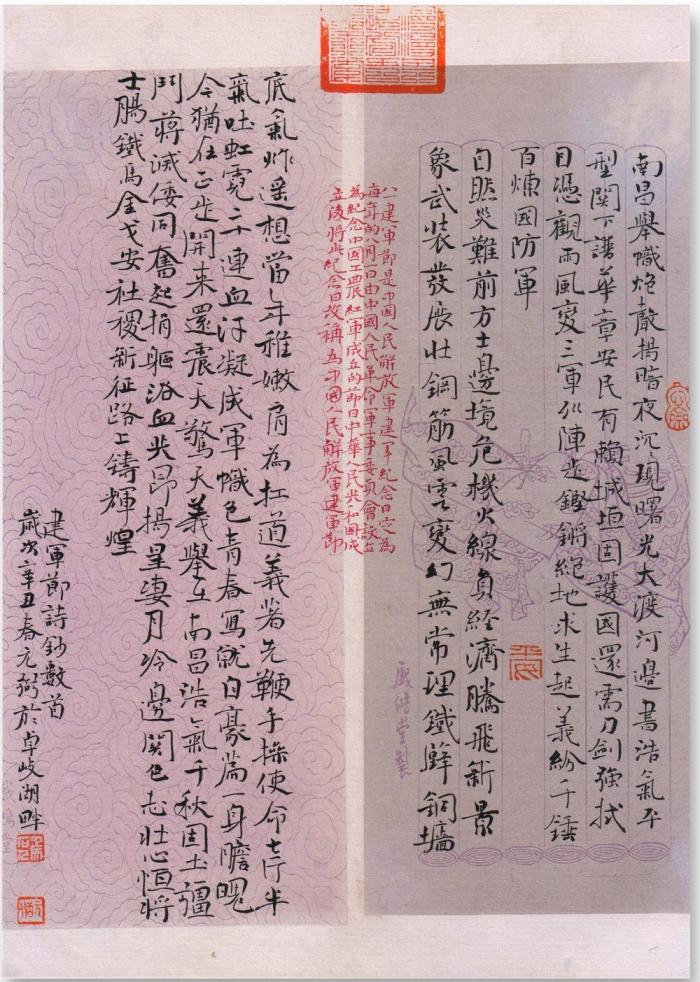 南昌舉幟炮聲揚暗夜沉沉現曙光大渡河邊書浩氣平
型關下譜華章安民有賴城垣固護國還需刀劍強拭
目憑觀雨風變三軍列陣步鏗鏘絕地求生起義紛千錘
百煉國防軍
自然災難前方士邊境危機火線員經濟騰飛新景
象武裝發展壯鋼筋風雲變幻無常理鐵鮮銅墻
八一建軍節是中國人民解放軍建軍紀念日定為
每年的八月一日由中國人民革命軍事委員會設立
為紀念中國工農紅軍成立的節日中華人民共和國成
立後將此紀念日改稱為中國人民解放軍建軍節
底氣炸遥想當年稚嫩肩為扛道義著先鞭手操使命七斤半
氣吐虹霓二十連血汗凝成軍幟色青春寫就自豪篇一身膽魄
今猶在正步開來還震天驚天義舉在南昌浩氣千秋固土疆
鬥蔣滅倭同奮起捐軀浴血共昂揚星淒月冷邊關色志壯心恒將
士腸鐵馬金戈安社稷新征路上鑄輝煌
建軍節詩鈔數首
歲次辛丑春元弼於卓岐湖畔